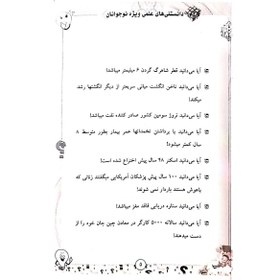 دانستنی‌های علمی ویژه نوجوانان
آیا می‌دانید قطر شاهرگ گردن ۶ میلیمتر میباشد!
آیا می‌دانید ناخن انگشت میانی سریعتر از دیگر انگشتها رشد
میکند!
آیا می‌دانید نروژ سومین کشور صادر کننده نفت میباشد!
آیا می‌دانید با برداشتن تخمدانها عمر بیمار بطور متوسط ۸
سال کمتر میشود!
آیا می‌دانید اسکنر ۲۸ سال پیش اختراع شده است!
آیا می‌دانید ۱۰۰ سال پیش پزشکان آمریکایی میگفتند زنانی که
باهوش هستند باردار نمی شوند!
آیا می‌دانید ستاره دریایی فاقد مغز میباشد!
آیا می‌دانید سالانه ۵۰۰۰ کارگر در معادن چین جان خود را از
دست میدهند!
۵